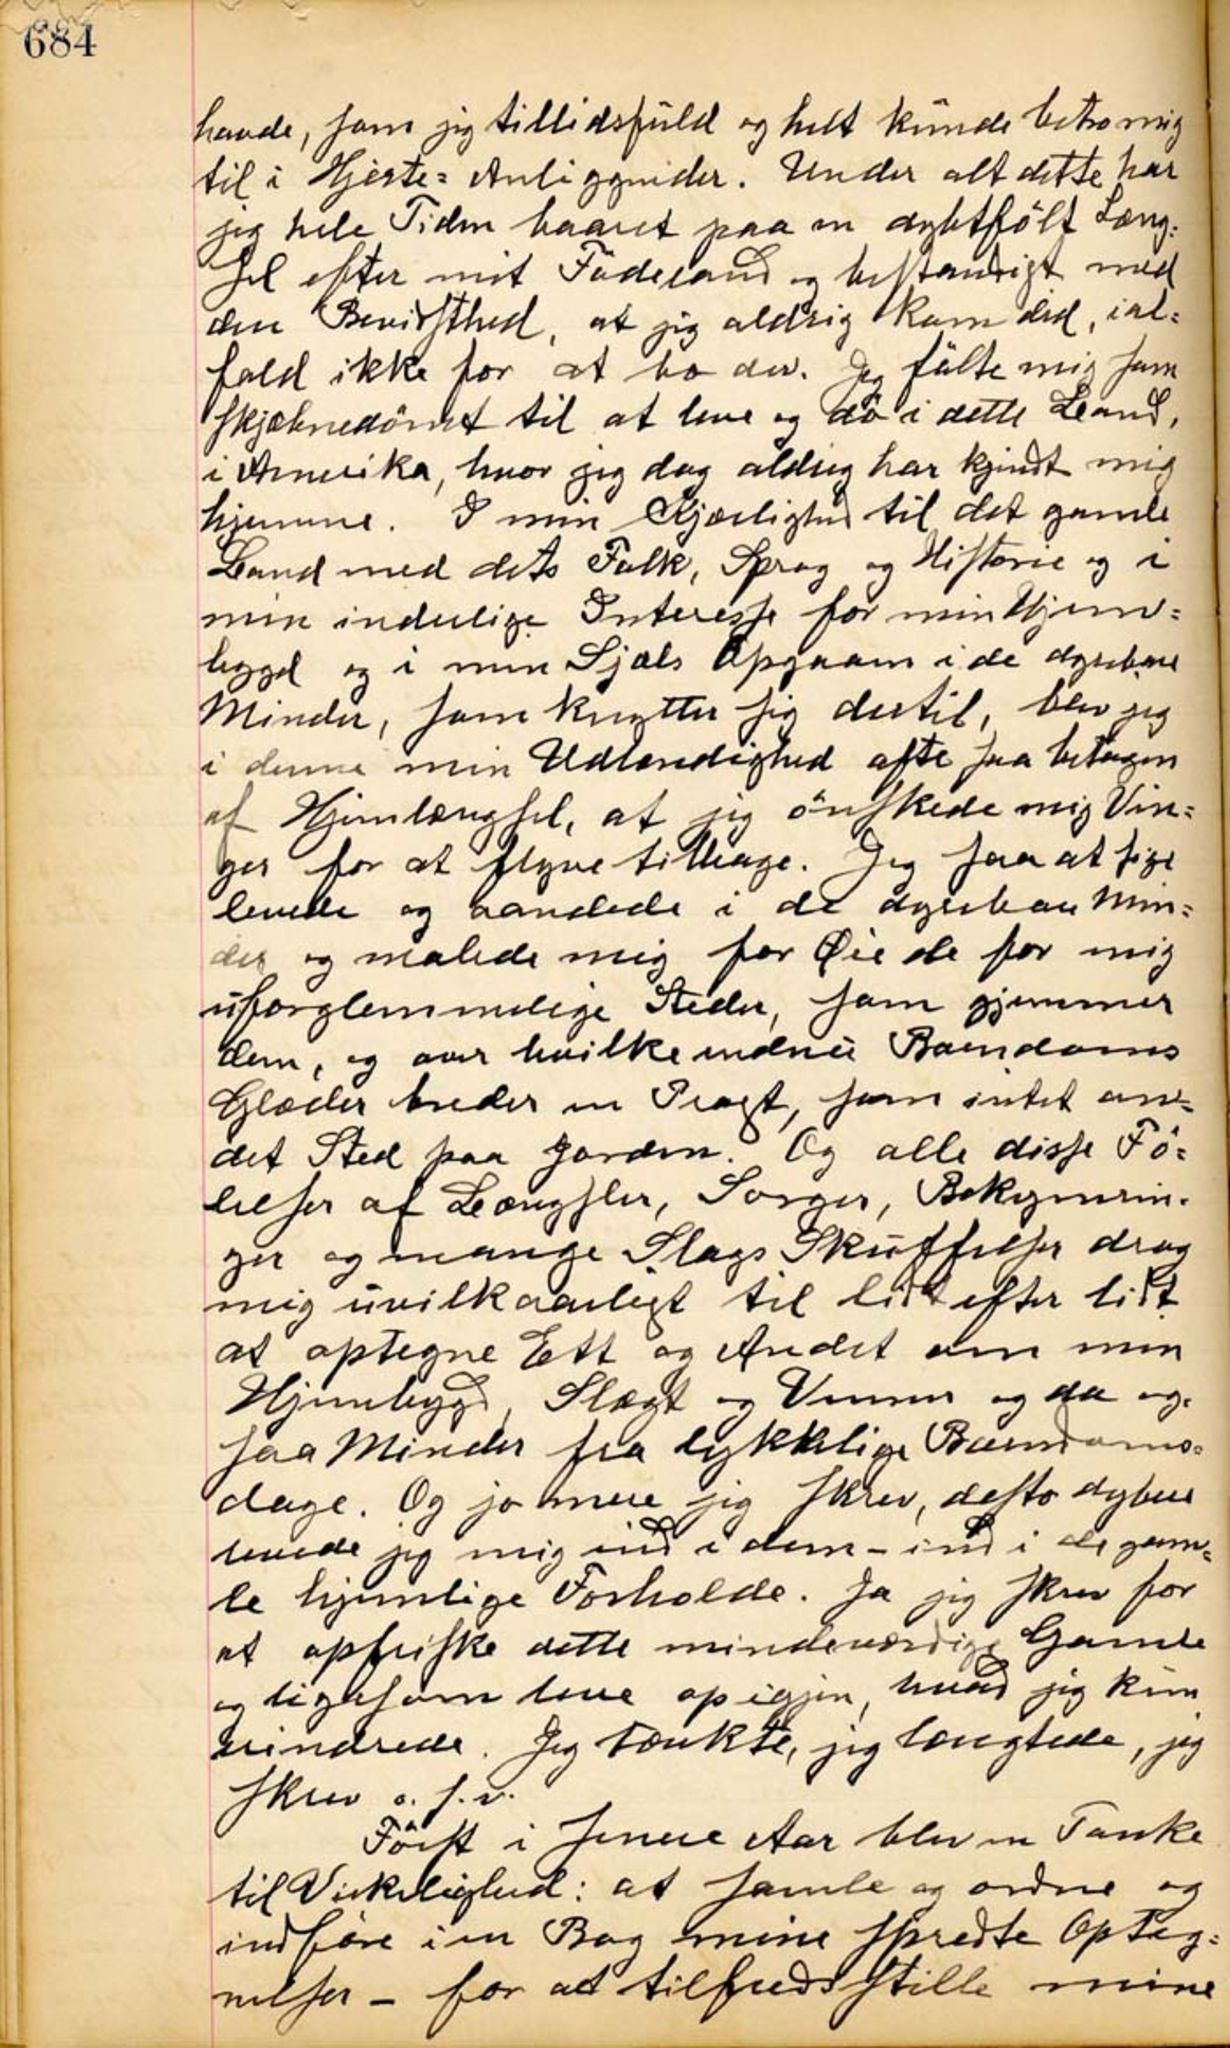 684
havde, som jeg tillidsfuld og helt kunde betro mig
til i Hjerte= Anliggender. Under alt dette har
jeg hele Tiden baaret paa en dybtfölt Læng=
sel efter mit Födeland og bestandigt med
den Bevidsthed, at jeg aldrig kom did, ial=
fald ikke for at bo der. Jeg fölte mig som
skjæbnedömt til at leve og dö i dette Land,
i Amerika, hvor jeg dog aldrig har kjendt mig
hjemme. I min Kjærlighed til det gamle
Land med dets Folk, Sprog og Historie og i
min inderlige Interesse for min Hjem=
bygd og i min Sjæls Opgaaen i de dyrebare
Minder, som knytter sig dertil, blev jeg
i denne min Udlændighed ofte saa betagen
af Hjemlængsel, at jeg önskede mig Vin=
ger for at flyve tilbage. Jeg saa at sige
levede og aandede i de dyrebare Min=
der og malede mig for Øie de for mig
uforglemmelige Steder, som gjemmer
dem, og over hvilke endnu Barndoms
Glæder breder en Pragt, som intet an=
det Sted paa Jorden. Og alle disse Fö=
lelser af Længsler, Sorger, Bekymrin=
ger og mange Slags Skuffelser drog
mig uvilkaarligt til lidt efter lidt
at optegne Ett og Andet om min
Hjembygd, Slægt og Venner og da og=
saa Minder fra lykkelige Barndoms=
dage. Og jo mere jeg skrev, desto dybere
levede jeg mig ind i dem - ind i de gam=
le hjemlige Forholde. Ja jeg skrev for
at opfriske dette mindeværdige Gamle
og ligesom leve op igjen, hvad jeg kun
mindrede. Jeg tænkte, jeg længtede, jeg
skrev o. s. v.
Först i senere Aar blev en Tanke
til Virkelighed: at samle og ordne og
indföre i en Bog mine spredte Opteg=
nelser - for at tilfredsstille mine